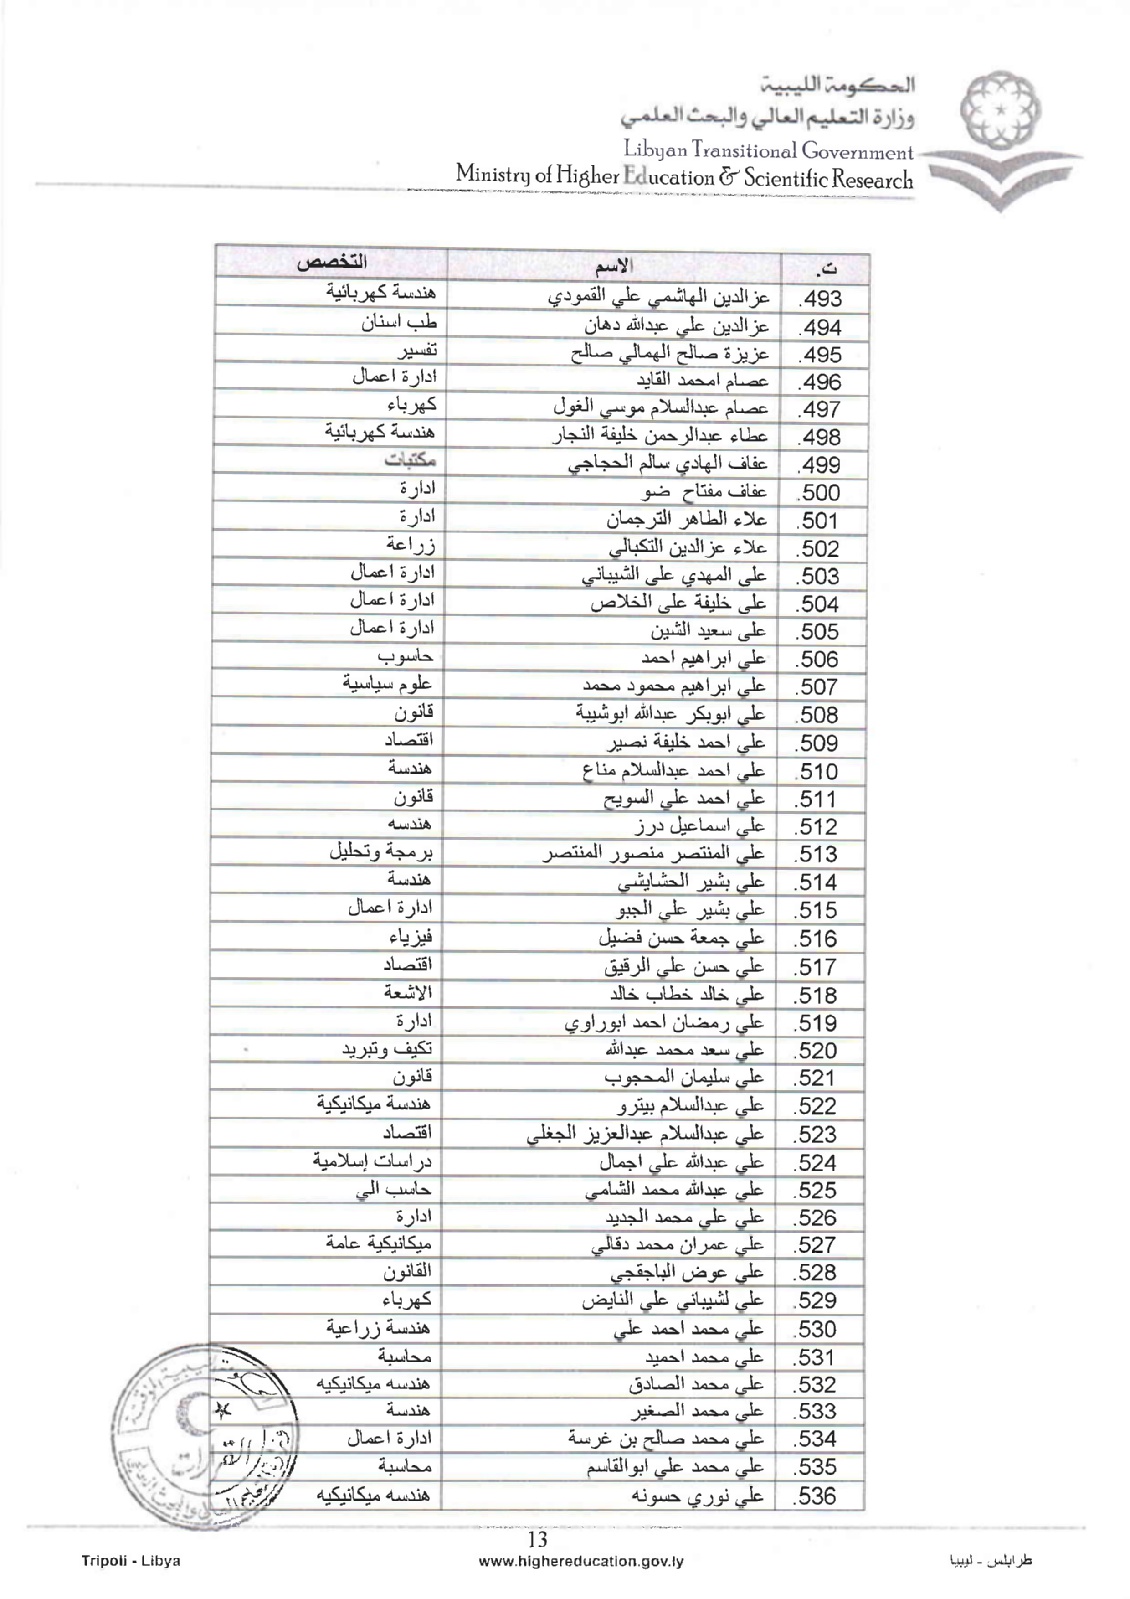 الحكومة الليبية
وزارة التعليم العالي والبحث العلمي
Libyan Transitional Government
Ministry of Higher Education & Scientific Research
ت. الاسم التخصص
493. عزالدين الهاشمي علي القمودي هندسة كهربائية
494. عزالدين علي عبدالله دهان طب اسنان
495. عزيزة صالح الهمالي صالح تفسير
496. عصام امحمد القايد ادارة اعمال
497. عصام عبدالسلام موسي الغول كهرباء
498. عطاء عبدالرحمن خليفة النجار هندسة كهربائية
499. عفاف الهادي سالم الحجاجي مكتبات
500. عفاف مفتاح ضو ادارة
501. علاء الطاهر الترجمان ادارة
502. علاء عزالدين التكبالي زراعة
503. على المهدي على الشيباني ادارة اعمال
504. على خليفة على الخلاص ادارة اعمال
505. على سعيد الشين ادارة اعمال
506. علي ابراهيم احمد حاسوب
507. علي ابراهيم محمود محمد علوم سياسية
508. علي ابوبكر عبدالله ابوشيبة قانون
509. علي احمد خليفة نصير اقتصاد
510. علي احمد عبدالسلام مناع هندسة
511. علي احمد علي السويح قانون
512. علي اسماعيل درز هندسه
513. علي المنتصر منصور المنتصر برمجة وتحليل
514. علي بشير الحشايشي هندسة
515. علي بشير علي الجبو ادارة اعمال
516. علي جمعة حسن فضيل فيزياء
517. علي حسن علي الرقيق اقتصاد
518. علي خالد خطاب خالد الاشعة
519. علي رمضان احمد ابوراوي ادارة
520. علي سعد محمد عبدالله تكيف وتبريد
521. علي سليمان المحجوب قانون
522. علي عبدالسلام بيترو هندسة ميكانيكية
523. علي عبدالسلام عبدالعزيز الجغلي اقتصاد
524. علي عبدالله علي اجمال دراسات إسلامية
525. علي عبدالله محمد الشامي حاسب الي
526. علي علي محمد الجديد ادارة
527. علي عمران محمد دقالي ميكانيكية عامة
528. علي عوض الباجقجي القانون
529. علي لشيباني علي النايض كهرباء
530. علي محمد احمد علي هندسة زراعية
531. علي محمد احميد محاسبة
532. علي محمد الصادق هندسه ميكانيكيه
533. علي محمد الصغير هندسة
534. علي محمد صالح بن غرسة ادارة اعمال
535. علي محمد علي ابوالقاسم محاسبة
536. علي نوري حسونه هندسه ميكانيكيه
13
Tripoli - Libya www.highereducation.gov.ly طرابلس - ليبيا